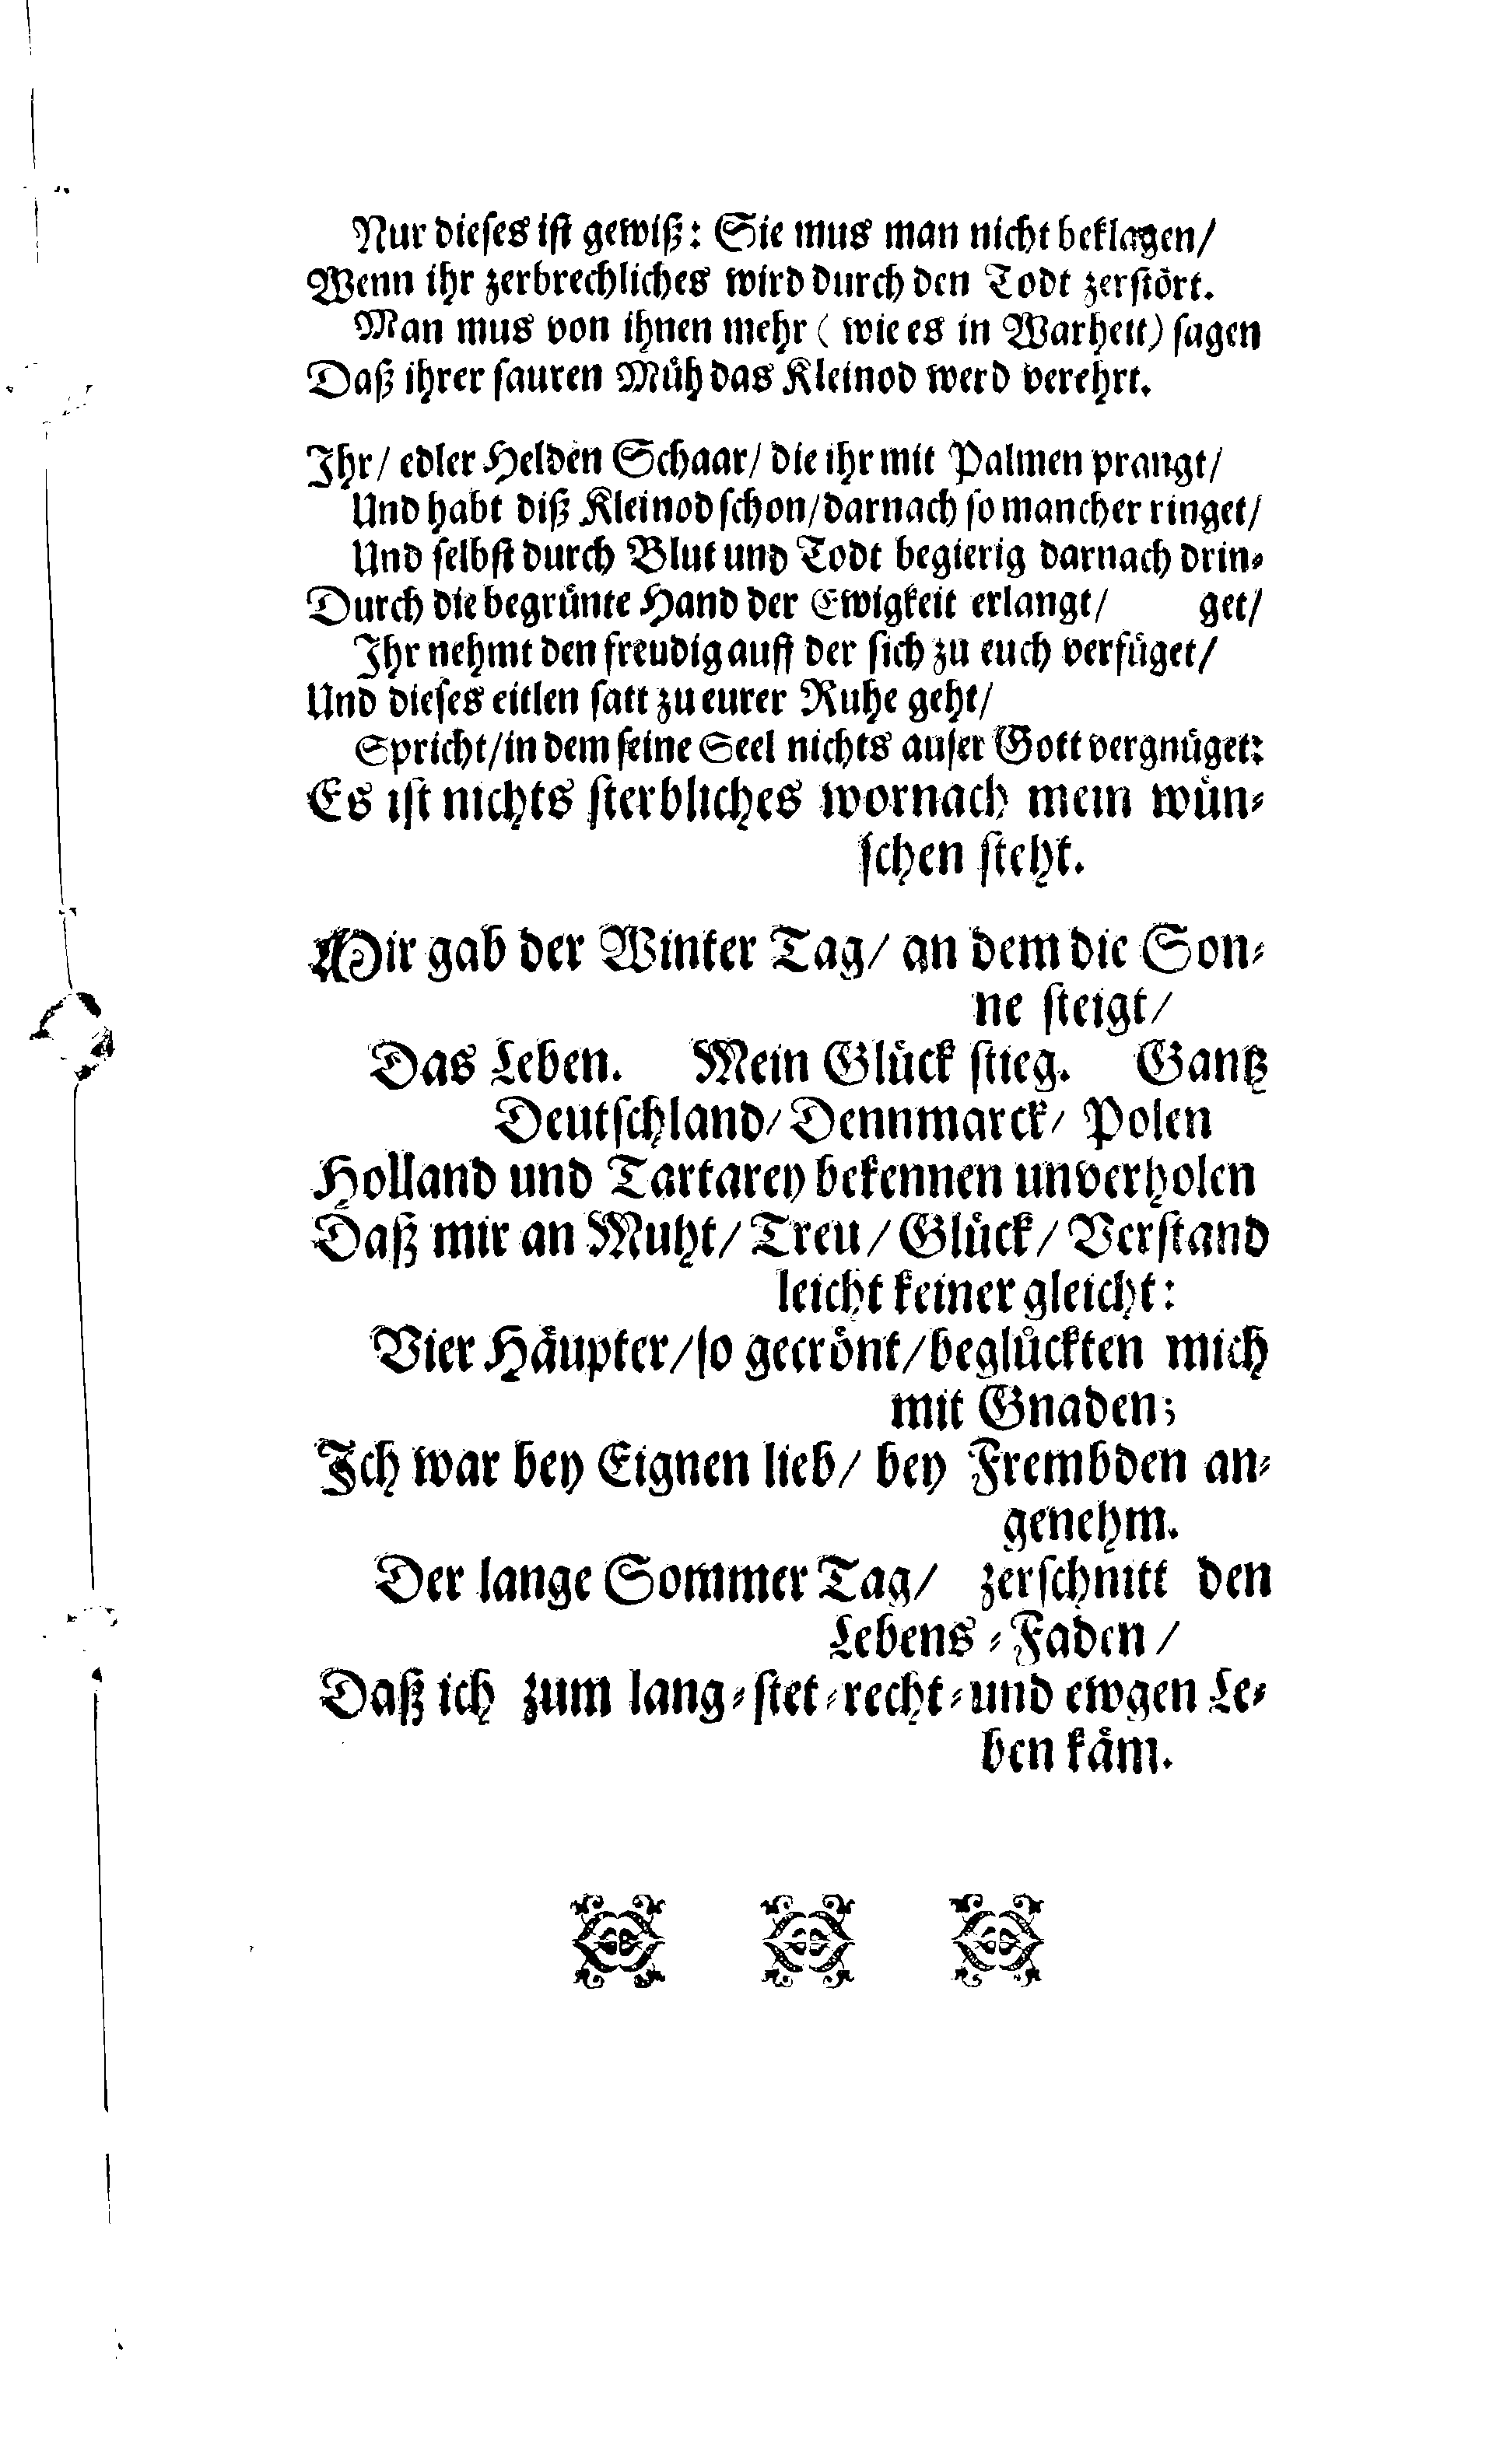 Nur dieses ist gewiß: Sie mus man nicht beklagen/
Wenn ihr zerbrechliches wird durch den Todt zerstört.
Man mus von ihnen mehr (wie es in Warheit) sagen
Daß ihrer sauren Müh das Kleinod werd verehrt.
Ihr/ edler Helden Schaar/ die ihr mit Palmen prangt/
Und habt diß Kleinod schon/ darnach so mancher ringet/
Und selbst durch Blut und Todt begierig darnach drin-
Durch die begrünte Hand der Ewigkeit erlangt/ get/
Ihr nehmt den freudig auff der sich zu euch verfüget/
Und dieses eitlen satt zu eurer Ruhe geht/
Spricht/ in dem seine Seel nichts auser Gott vergnüget:
Es ist nichts sterbliches wornach mein wün-
schen steht.
Mir gab der Winter Tag/ an dem die Son-
ne steigt/
Das Leben. Mein Glück stieg. Gantz
Deutschland/ Dennmarck/ Polen
Holland und Tartarey bekennen unverholen
Daß mir an Muht/ Treu/ Glück/ Verstand
leicht keiner gleicht:
Vier Häupter/ so gecrönt/ beglückten mich
mit Gnaden;
Ich war bey Eignen lieb/ bey Frembden an-
genehm.
Der lange Sommer Tag/ zerschnitt den
Lebens-Faden/
Daß ich zum lang-stet-recht-und ewgen Le-
ben käm.